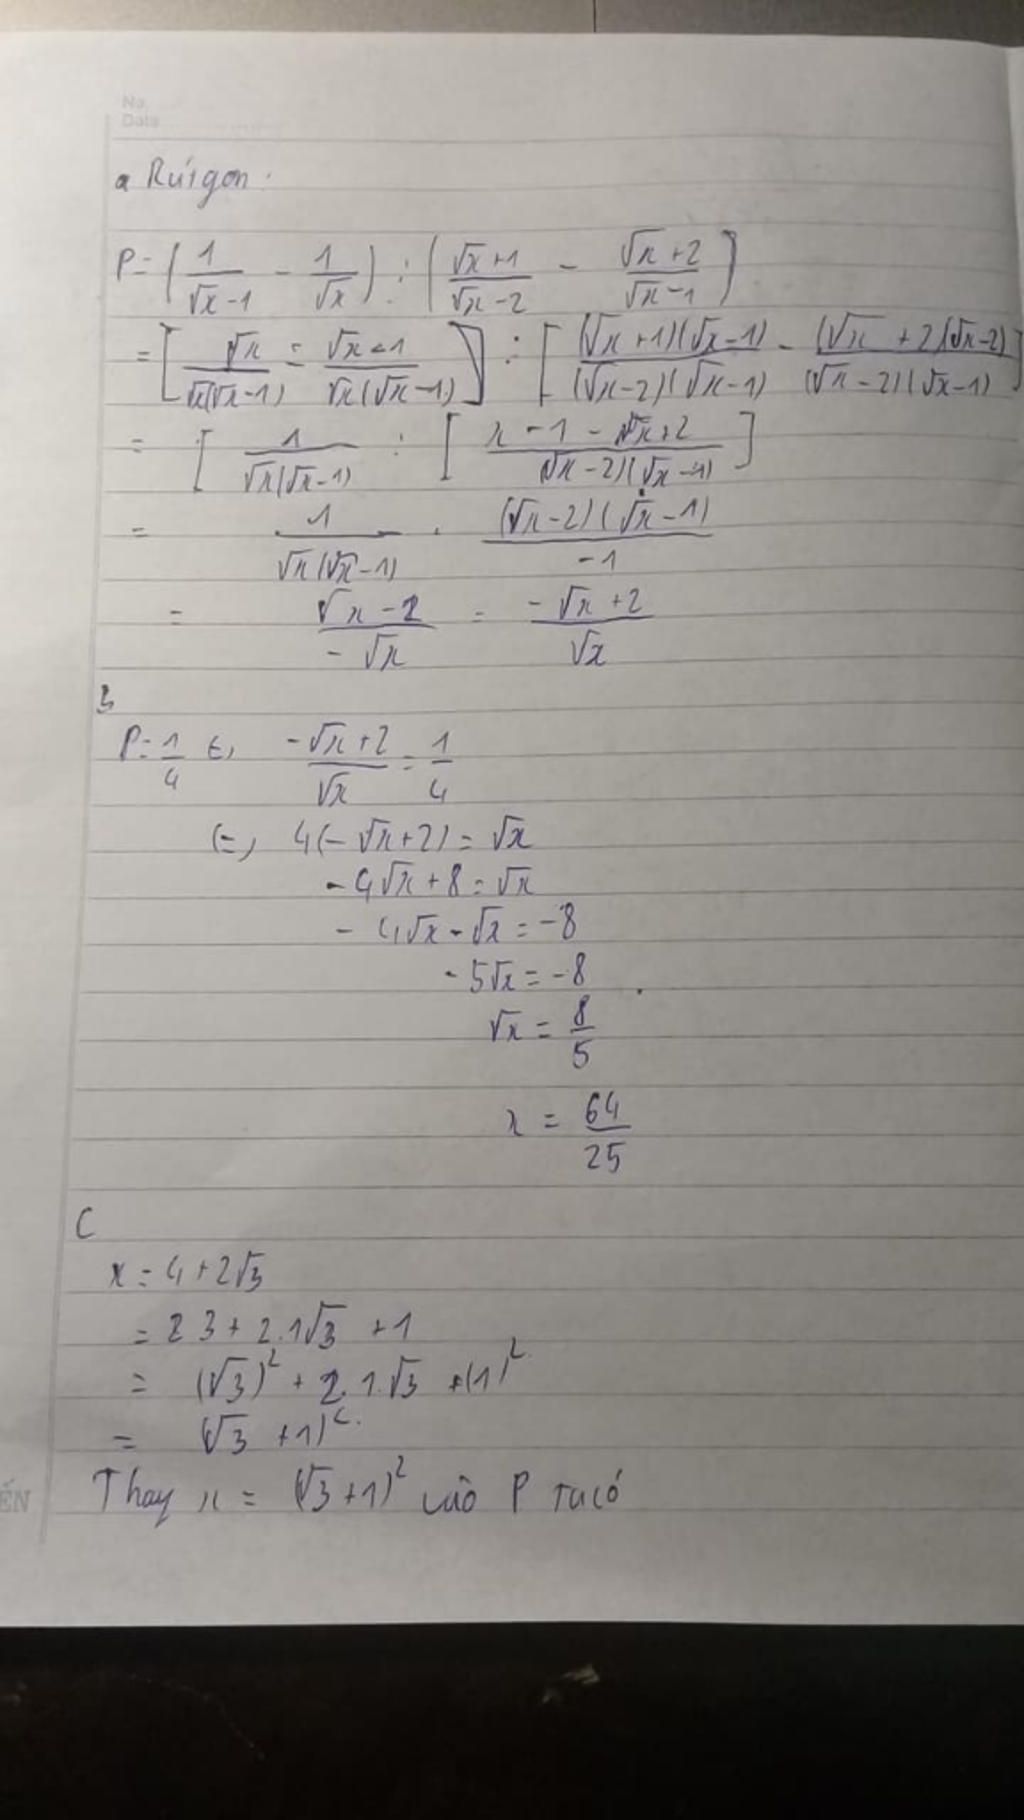 No.
Date
a Rút gọn.
P = (1/(√x-1) - 1/√x) : (√x+1)/(√x-2) - (√x+2)/(√x-1)]
= [√x/(√x(√x-1)) - (√x-1)/(√x(√x-1))] : [(√x+1)(√x-1)/((√x-2)(√x-1)) - (√x+2)(√x-2)/((√x-2)(√x-1))]
= [1/(√x(√x-1)) : [(x-1-√x+2)/((√x-2)(√x-1))]
= 1/(√x(√x-1)) . (√x-2)(√x-1)/-1
= (√x-2)/(-√x) = (-√x+2)/√x
B
P = 1/4 (=) (-√x+2)/√x = 1/4
(=) 4(-√x+2) = √x
-4√x+8 = √x
- 4√x - √x = -8
- 5√x = -8
√x = 8/5
x = 64/25
C
x = 4+2√3
= 3 + 2.1√3 + 1
= (√3)² + 2.1.√3 + (1)²
= (√3 +1)².
Thay x = (√3+1)² vào P ta có
ẾN